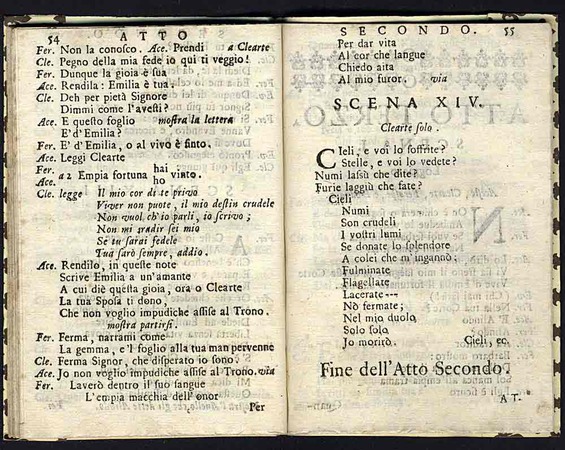 54 ATTO
Fer. Non la conosco. Ace. Prendi a Clearte
Cle. Pegno della mia fede io qui ti veggio!
Fer. Dunque la gioia è sua
Ace. Rendila: Emilia è tua.
Cle. Deh per pietà Signore
Dimmi come l'avesti?
Ace. E questo foglio mostra la lettera
E' d'Emilia?
Fer. E' d'Emilia, o al vivo è finto.
Ace. Leggi Clearte
Fer. Ace. a 2 Empia fortuna hai ho vinto.
Cle. legge Il mio cor di te privo
Viver non puote, il mio destin crudele
Non vuol ch'io parli, io scrivo;
Non mi gradir sei mio
Se tu sarai fedele
Tua sarò sempre, addio.
Ace. Rendilo, in queste note
Scrive Emilia a un'amante
A cui diè questa gioia, ora o Clearte
La tua Sposa ti dono,
Che non voglio impudiche assise al Trono.
mostra partirsi.
Fer. Ferma, narrami come
La gemma, e'l foglio alla tua man pervenne
Cle. Ferma Signor, che disperato io sono.
Ace. Jo non voglio impudiche assise al Trono. via
Fer. Laverò dentro il suo sangue
L'empia macchia dell'onor
Per
SECONDO. 55
Per dar vita
Al cor che langue
Chiedo aita
Al mio furor. via
SCENA XIV.
Clearte solo.
Cieli, e voi lo soffrite?
Stelle, e voi lo vedete?
Numi lassù che dite?
Furie laggiù che fate?
Cieli
Numi
Son crudeli
I vostri lumi
Se donate lo splendore
A colei che m'ingannò;
Fulminate
Flagellate
Lacerate---
Nò fermate;
Nel mio duolo
Solo solo
Jo morirò. Cieli, ec.
Fine dell'Atto Secondo.
AT.